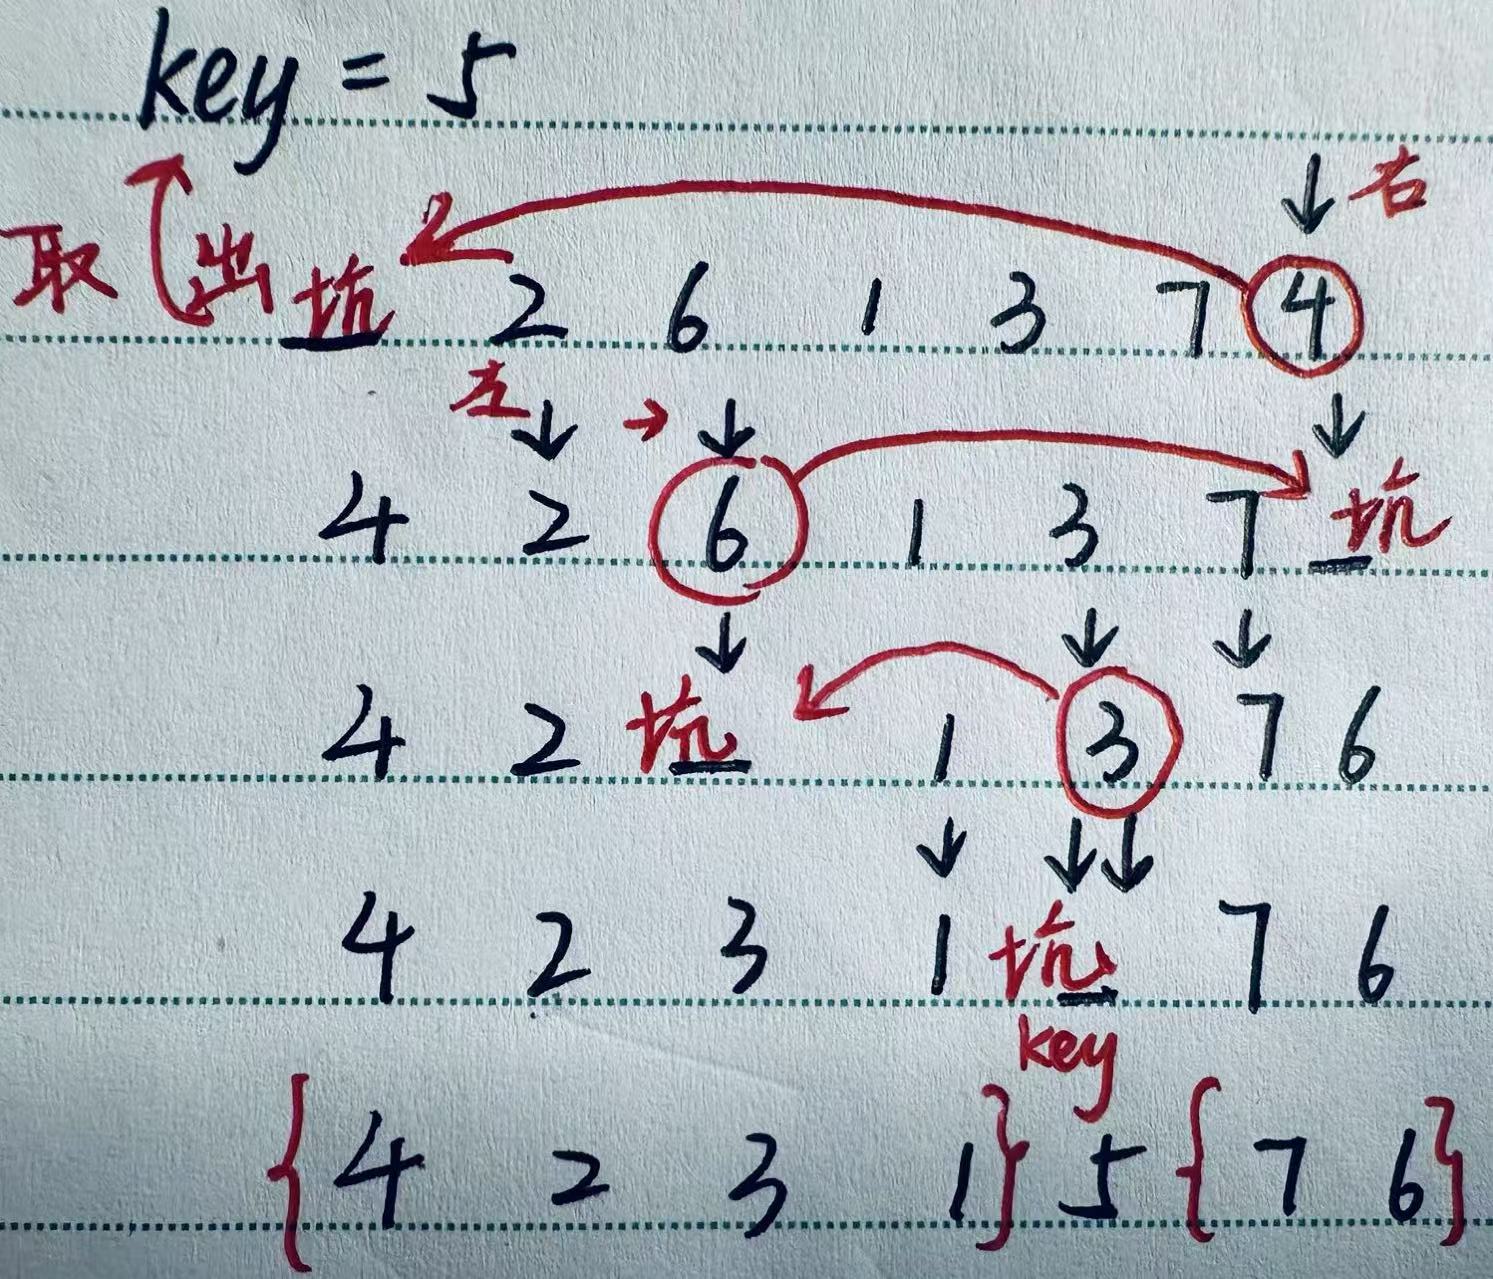 key = 5
右
取出坑 2 6 1 3 7 4
左
4 2 6 1 3 7 坑
4 2 坑 1 3 7 6
4 2 3 1 坑 7 6
key
{4 2 3 1} 5 {7 6}